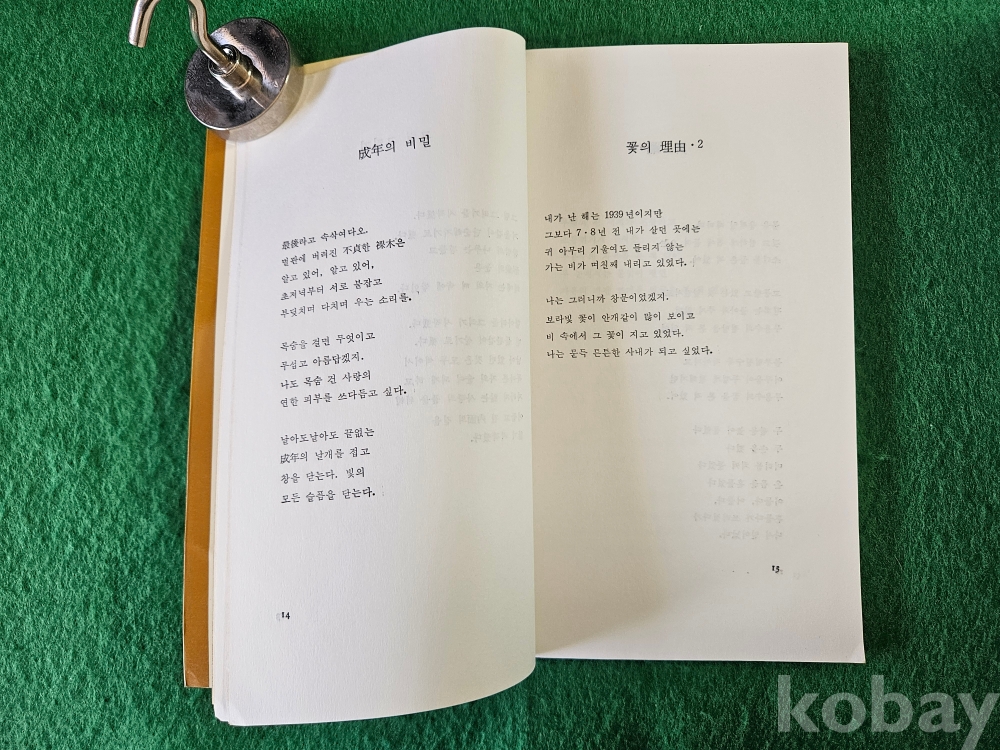 成年의 비밀
最後라고 속삭여다오.
벌판에 버려진 不貞한 裸木은
알고 있어, 알고 있어,
초저녁부터 서로 붙잡고
부딪치며 다치며 우는 소리를.
목숨을 걸면 무엇이고
무섭고 아름답겠지.
나도 목숨 건 사랑의
연한 피부를 쓰다듬고 싶다.
날아도날아도 끝없는
成年의 날개를 접고
창을 닫는다. 빛의
모든 슬픔을 닫는다.
14
꽃의 理由·2
내가 난 해는 1939년이지만
그보다 7·8년 전 내가 살던 곳에는
귀 아무리 기울여도 들리지 않는
가는 비가 며칠째 내리고 있었다.
나는 그러니까 창문이었겠지.
보라빛 꽃이 안개같이 많이 보이고
비 속에서 그 꽃이 지고 있었다.
나는 문득 튼튼한 사내가 되고 싶었다.
15
kobay